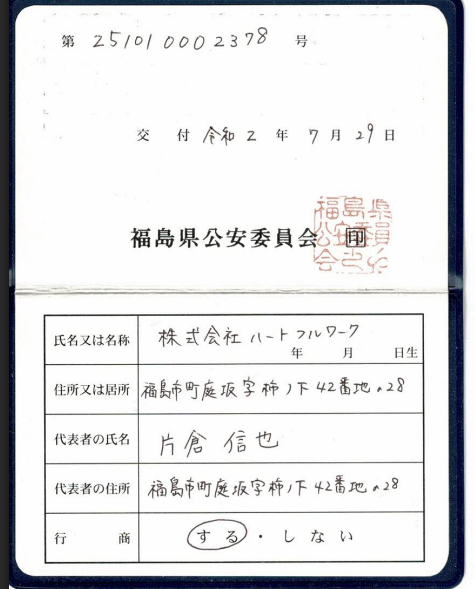 第 251010002378 号
交 付 令和 2 年 7 月 29 日
福島県公安委員会 印
福島県公安委員会之印
氏名又は名称 株式会社 ハートフルワーク
年 月 日生
住所又は居所 福島市町庭坂字柿ノ下42番地の28
代表者の氏名 片倉 信也
代表者の住所 福島市町庭坂字柿ノ下42番地の28
行 商 する・しない